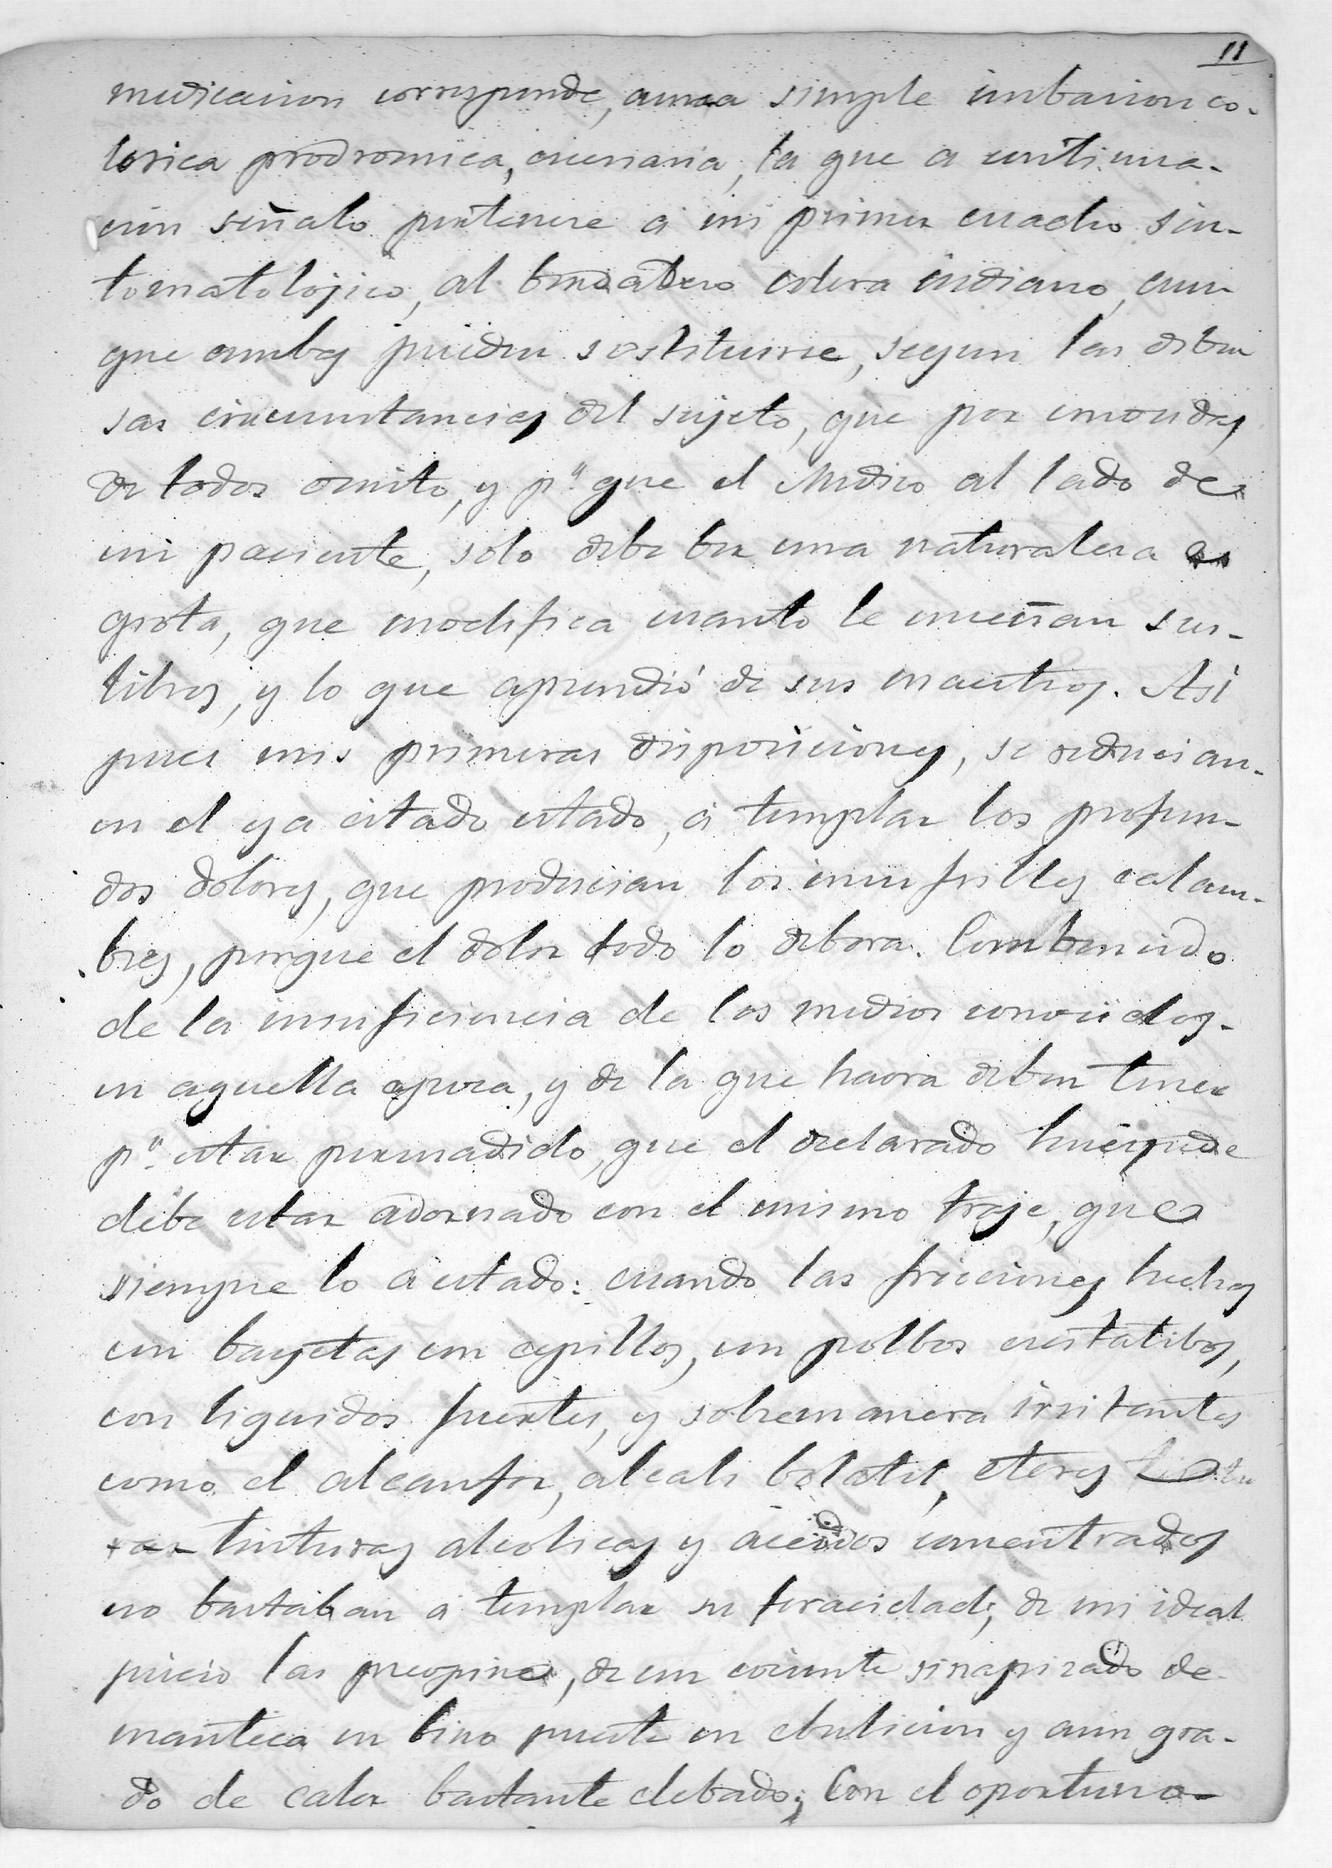 11
medicacion corresponde, auna simple imbacion co-
lerica prodromica, ouenaria, la que a continua-
cion señalo pertenece á mi primer cuadro sin-
tomatolójico, al berdadero colera indiano, aun
que ambos pueden sostituirse, segun las diber
sas circunstancias del sujeto, que por conocidas
de todos omito, y pª que el Medico al lado de
un paciente, solo debe ber una naturalesa
grota, que modifica cuanto le enseñan sus-
libros, y lo que aprendió de sus maestros. Asi
pues mis primeras disposiciones, se reducian-
en el ya citado estado, á templar los profun-
dos dolores, que producian los insufribles calam-
bres, porque el dolor todo lo debora. Combencido
de la insuficiencia de los medios conocidos-
en aquella epoca, y de la que haora deben tener
pª estar persuadido, que el declarado huesped
debe estar adornado con el mismo traje, que
siempre lo a estado: cuando las fricciones hechas
con bayetas con cepillos, con polbos escitatibos,
con liquidos fuertes, y sobremanera irritantes
como el alcanfor, alcali bolatil, eteres
tinturas alcolicas y ácidos concentrados
no bastaban a templar su feracidad; de mi ideal
juicio las preopine, de un cociente sinapizado de
manteca en bino puesta en ebulicion y aun gra-
do de calor bastante elebado; Con el oportuno-